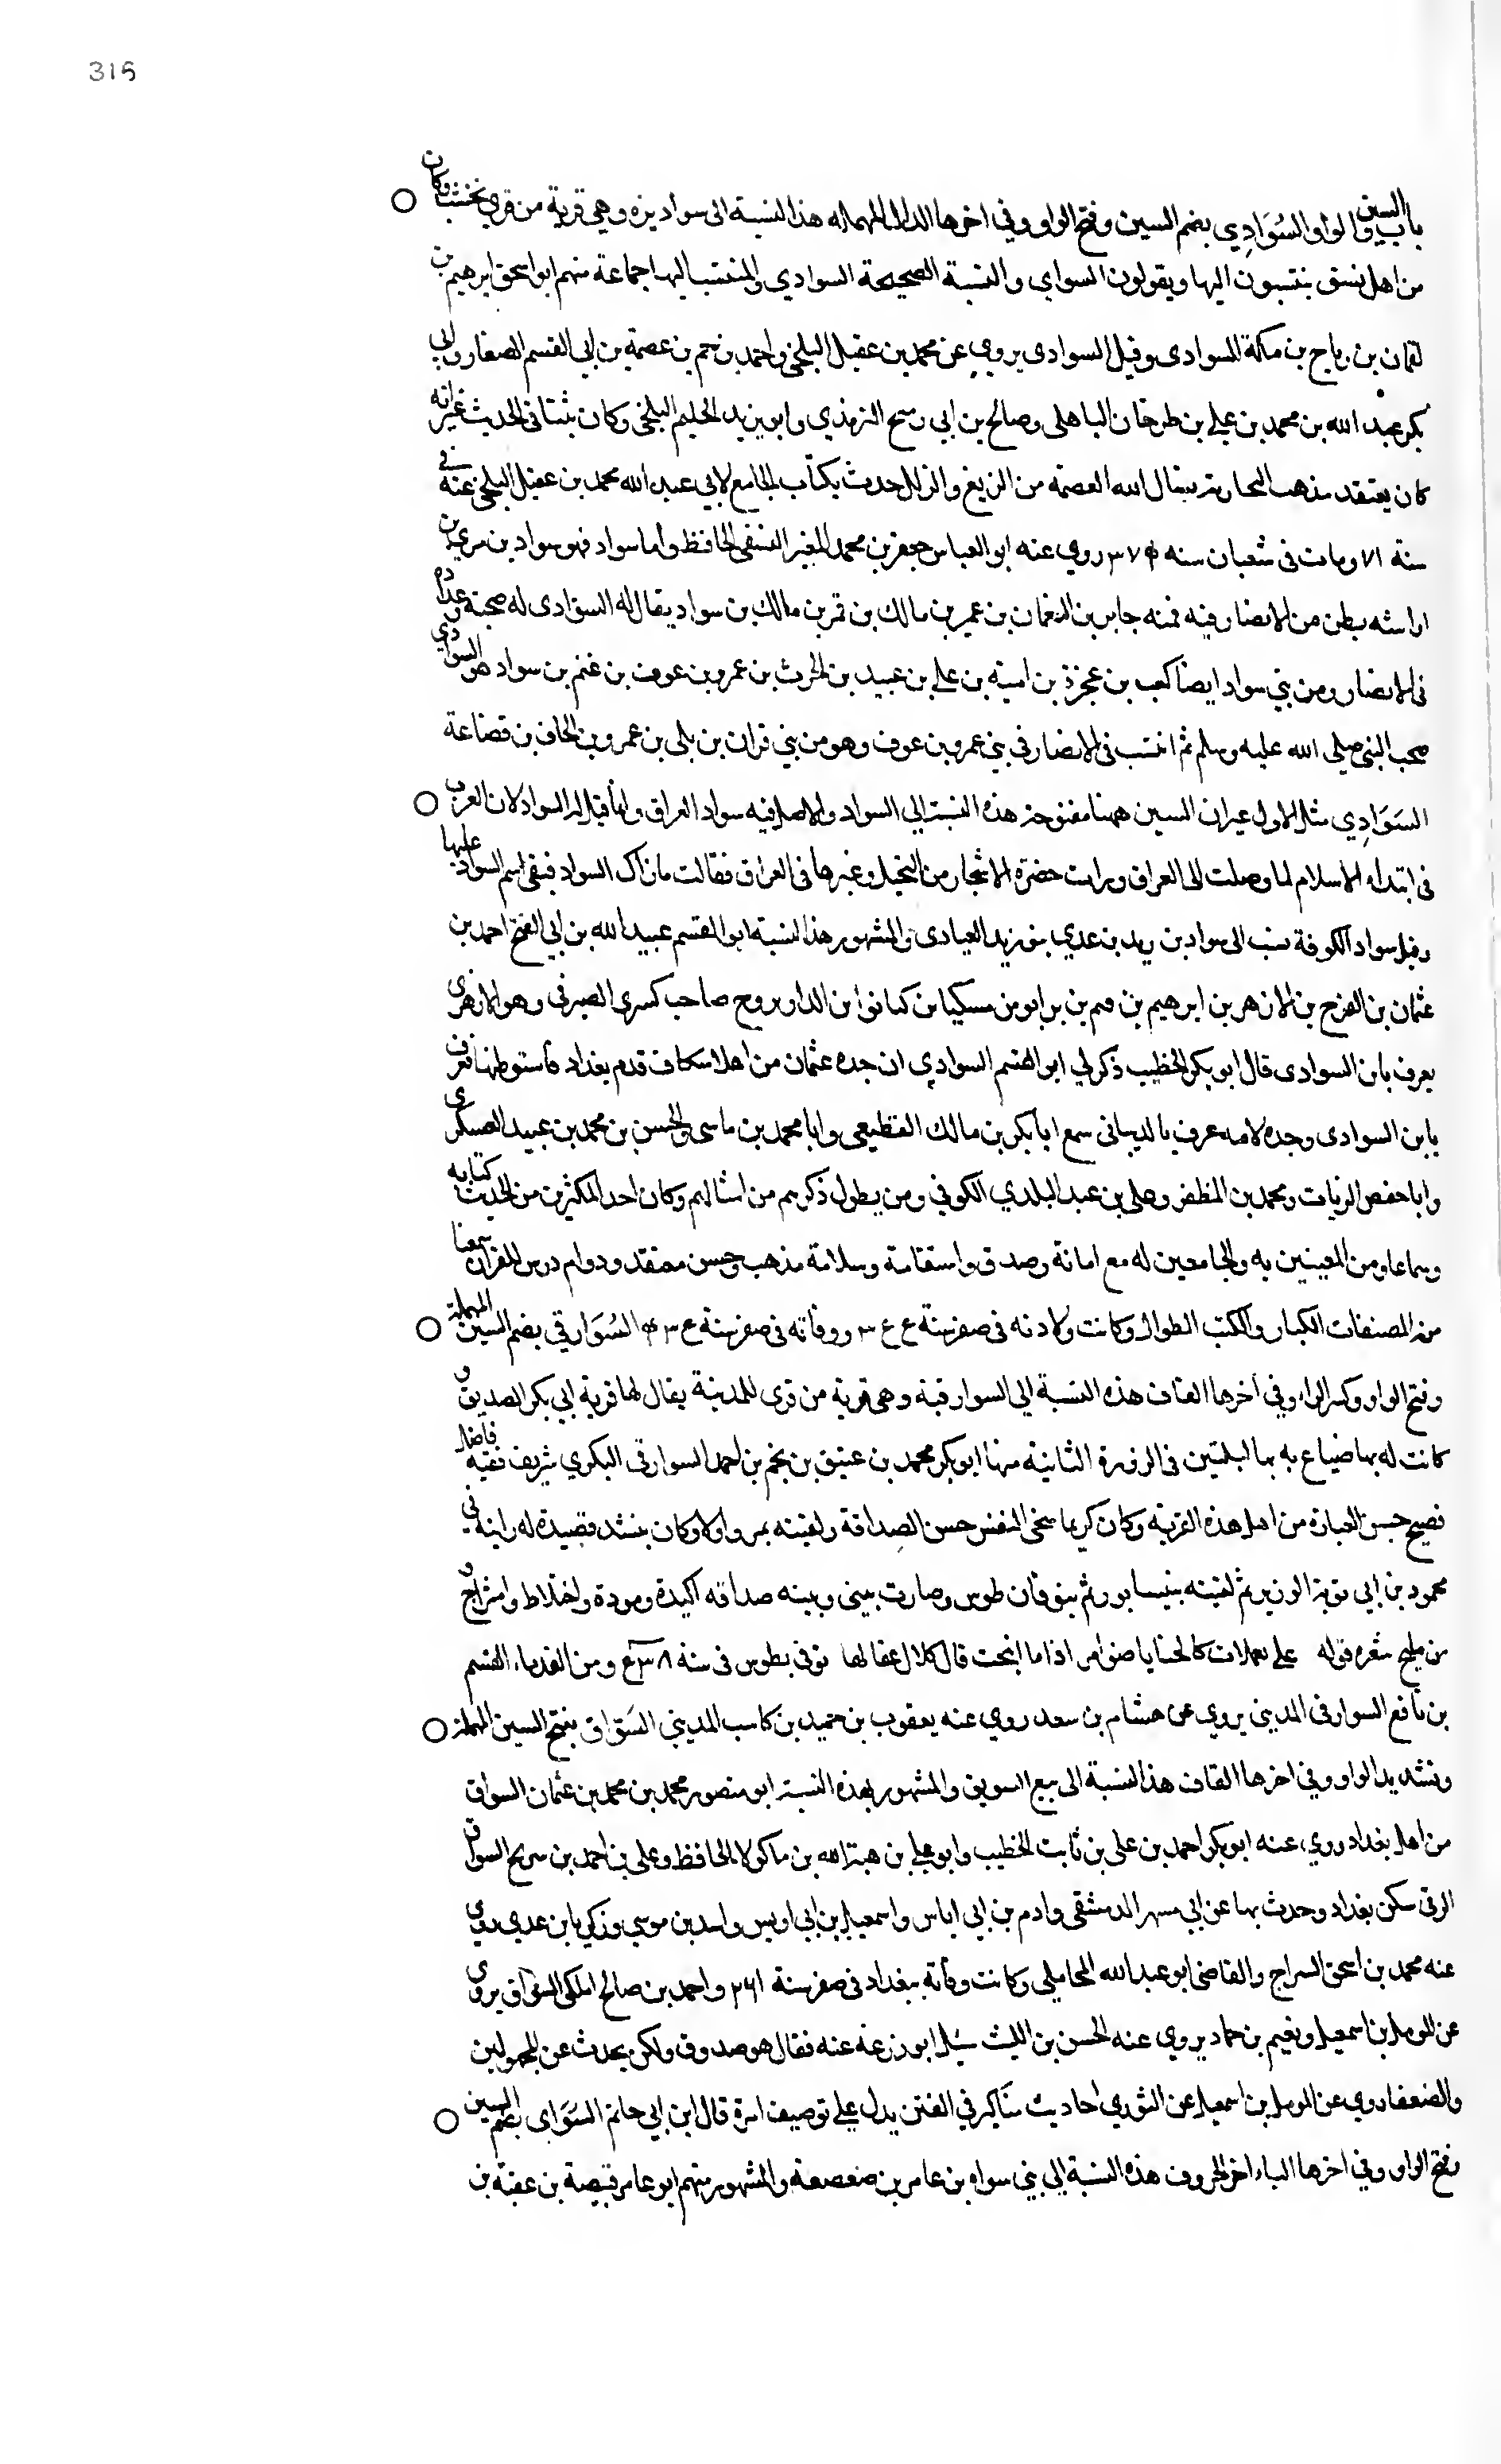 315
باب السين والواو السُوَادِي بضم السين وفتح الواو وفي اخرها الدال المهملة هذا النسبة الى سواديزه وهي قرية من قرى نخشب وكان
من اهل نسف ينتسبون اليها ويقولون السواي والنسبة الصحيحة السوادي والمنتسب اليها جماعة منهم ابو اسحق ابرهيم بن
لقمان بن رباح بن مكة السوادى وقيل السوادى يروي عن محمد بن عقيل البلخي واحمد بن حم بن عصمة بن ابي القسم الصفار وابي
بكر عبد الله بن محمد بن علي بن طرخان الباهلي وصالح بن ابي رميح الترمذي وابو يزيد الحليم البلخي وكان ثبتا في الحديث غير انه
كان يعتقد مذهب النجارية نسال الله العصمة من الزيغ والزلل حدث بكتاب الجامع لابي عبد الله محمد بن عقيل البلخي عنه في
سنة ٧١ ومات في شعبان سنه ٣٧٤ روي عنه ابو العباس جعفر بن محمد المغير النسفي الحافظ واما سواد فهو سواد بن مري بن
اراشه بطن من الانصار فيه فمنه جابر بن النعمان بن عمير بن مالك بن قمر بن مالك بن سواد يقال له السوادى له صحبة وعداده
في الانصار ومن بني سواد ايضا كعب بن عجرة بن امية بن علي بن عبيد بن الحرث بن عمرو بن عوف بن غنم بن سواد هو السوادي
صحب النبي صلى الله عليه وسلم ثم انتسب في الانصار في بني عمرو بن عوف وهو من بني قران بن بلى بن عمرو بن الحاف بن قضاعة
السَوَادِي مثل الاول غير ان السين ههنا مفتوحة هذه النسبة الي السواد والاصل فيه سواد العراق وانما قيل له السواد لان العرب
في ابتداء الاسلام لما وصلت الى العراق ورات خضرة الاشجار من النخيل وغيرها في العراق فقالت ما ذاك السواد فبقي اسم السواد عليها
وقيل سواد الكوفة نسب الى سواد بن زيد بن عدي بن زيد العبادى والمشهور هذا النسبة ابو القسم عبيد الله بن ابي الفتح احمد بن
عثمان بن الفرج بن الازهر بن ابرهيم بن قيم بن برابو بن مسكيا بن كيانوا بن الداربروح صاحب كسرى الصيرفي وهو الازهرى
يعرف بابن السوادى قال ابو بكر الخطيب ذكر لي ابو القسم السوادي ان جده عثمان من اهل اسكاف قدم بغداد فاستوطنها فعرف
بابن السوادى وجده لامه عرف بالدبثاني سمع ابا بكر بن مالك القطيعي وابا محمد بن ماسى والحسن بن محمد بن عبيد العسكرى
وابا حفص الزيات ومحمد بن المظفر وعلي بن عبد البلدي الكوفي ومن يطول ذكرهم من امثالهم وكان احد المكثرين من الحديث كتابه
وسماعا ومن المعينين به والجامعين له مع امانة وصدق واستقامة وسلامة مذهب وحسن معتقد ودوام درس للقران سمعنا
منه المصنفات الكبار والكتب الطوال وكانت ولادته في صفر سنة ع ع ٣ ووفاته في صفر سنة ع ٣ ٤ السُوَارِقي بضم السين المهملة
وفتح الواو وكسر الراء وفي اخرها القاف هذه النسبة الي السوارقية وهي قرية من قرى المدينة يقال لها قرية ابي بكر الصديق و
كانت له بها ضياع به بها لبلتين في الزورة الثانية منها ابو بكر محمد بن عتيق بن نجم بن احمد السوارقي البكري شريف فقيه فاضل
فصيح حسن العبارة من اهل هذه القرية وكان كريما سخي النفس حسن الصداقة ولقيته بمرو اولا وكان ينشد قصيدة له رايته في
محمود بن ابي توبة الوزير ثم لقيته بنيسابور ثم بنوقان طوس وصارت بيني وبينه صداقه اكيدة ومودة واختلاط وامتزاج و
من مليح شعره قوله علي يعملات كالحنايا ضوامر اذا ما انتحت قال كلال عقالها توفي بطوس في سنة ٥٣٨ ومن القدماء القسم
بن نافع السوارقي المديني يروي عن هشام بن سعد روي عنه يعقوب بن حميد بن كاسب المديني السَوَاق بفتح السين المهملة
وتشديد الواو وفي اخرها القاف هذا النسبة الى بيع السويق والمشهور بهذه النسبة ابو منصور محمد بن محمد بن عثمان السواق
من اهل بغداد روي عنه ابو بكر احمد بن علي بن ثابت الخطيب وابو علي بن هبة الله بن ماكولا الحافظ وعلى بن احمد بن سريج السواق
الرقي سكن بغداد وحدث بها عن ابي مسهر الدمشقي وادم بن ابي اياس واسمعيل بن ابي اويس واسد بن موسي وزكريا بن عدي روي
عنه محمد بن اسحق السراج والقاضي ابو عبد الله المحاملي وكانت وفاته ببغداد في صفر سنة ٢٦١ واحمد بن صالح الملكي السواق يروى
عن المومل بن اسمعيل ونعيم بن حماد يروي عنه الحسن بن الليث سئل ابو زرعة عنه فقال هو صدوق ولكن يحدث عن المجهولين
والضعفا روي عن المومل بن اسمعيل عن الثوري احاديث مناكير في الفتن يدل علي توصيف امرة قال ابن ابي حاتم السُوَاى بضم السين
وفتح الواو وفي اخرها الياء اخر الحروف هذه النسبة الي بني سواه بن عامر بن صعصعة والمشهور منهم ابو عامر قبيصة بن عقبة بن